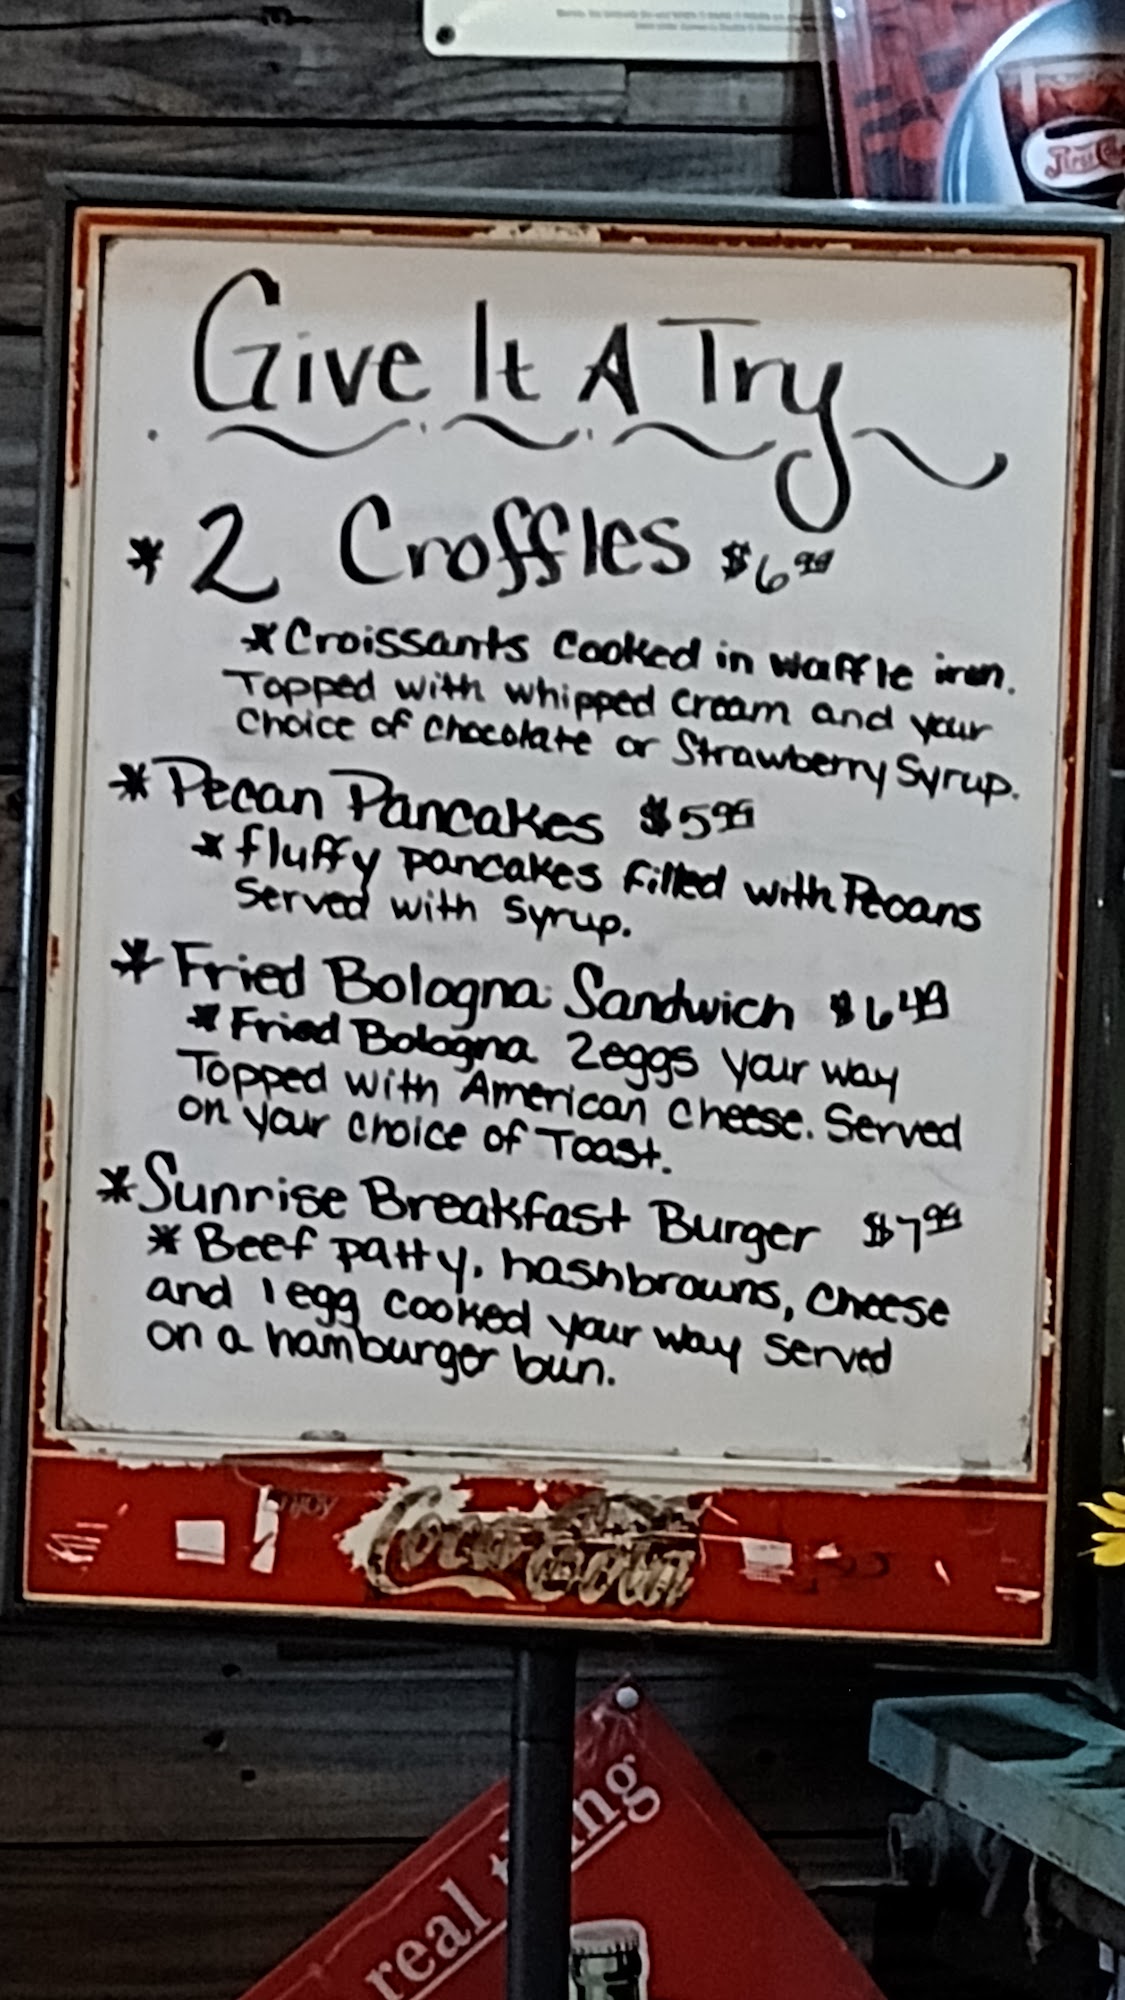 Pepsi Cola
Give It A Try
* 2 Croffles $6.99
* Croissants cooked in waffle iron.
Topped with whipped cream and your
choice of chocolate or Strawberry Syrup.
* Pecan Pancakes $5.99
* fluffy pancakes filled with Pecans
Served with Syrup.
* Fried Bologna Sandwich $6.49
* Fried Bologna 2eggs your way
Topped with American cheese. Served
on your choice of Toast.
* Sunrise Breakfast Burger $7.99
* Beef patty, hashbrowns, cheese
and 1 egg cooked your way served
on a hamburger bun.
Enjoy
Coca-Cola
real thing